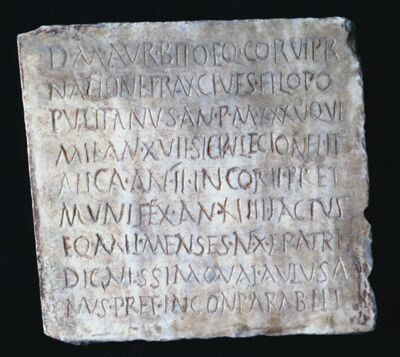 D·M·AVR BITO EQ·COR VI PR
NATIONE TRAX CIVES FILOPO
PVLITANVS·AN·P·M·XXXV QVI
MIL·AN·XVII·SIC IN LEGIONE I IT
ALICA·AN·II·IN COR·II PRET
MVNIFEX·AN·XIIII FACTVS
EQ·MIL·MENSES·N·X·FRATRI
DIGNISSIMO VAL·AVLVSA
NVS·PRET·INCONPARABILI